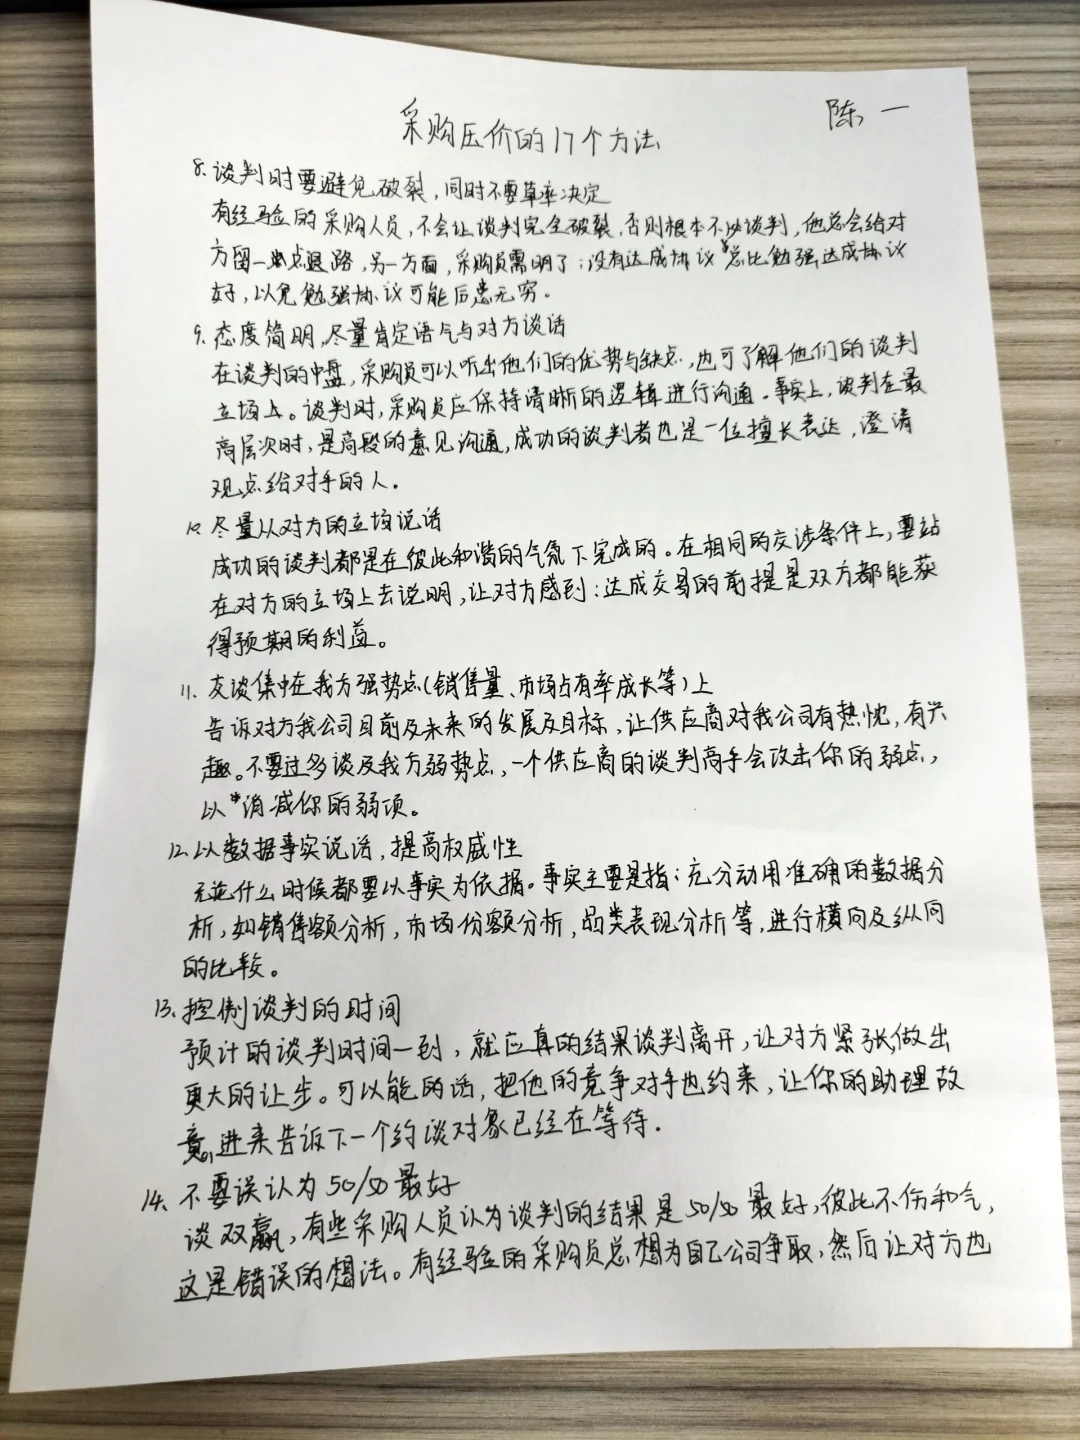 陈一
采购压价的17个方法
8. 谈判时要避免破裂,同时不要草率决定
有经验的采购人员,不会让谈判完全破裂,否则根本不必谈判,他总会给对
方留一点退路,另一方面,采购员需明了:没有达成协议总比勉强达成协议
好,以免勉强协议可能后患无穷。
9. 态度简明,尽量肯定语气与对方谈话
在谈判的中盘,采购员可以听出他们的优势与缺点,也可了解他们的谈判
立场上。谈判时,采购员应保持清晰的逻辑进行沟通。事实上,谈判在最
高层次时,是高段的意见沟通,成功的谈判者也是一位擅长表达,澄清
观点给对手的人.
10. 尽量从对方的立场说话
成功的谈判都是在彼此和谐的气氛下完成的。在相同的交涉条件上,要站
在对方的立场上去说明,让对方感到:达成交易的前提是双方都能获
得预期的利益。
11. 友谈集中在我方强势点(销售量、市场占有率成长等)上
告诉对方我公司目前及未来的发展及目标,让供应商对我公司有热忱,有兴
趣。不要过多谈及我方弱势点,一个供应商的谈判高手会攻击你的弱点,
以消减你的弱项。
12. 以数据事实说话,提高权威性
无论什么时候都要以事实为依据。事实主要是指:充分动用准确的数据分
析,如销售额分析,市场份额分析,品类表现分析等,进行横向及纵向
的比较。
13. 控制谈判的时间
预计的谈判时间一到,就应真的结果谈判离开,让对方紧张,做出
更大的让步。可以能的话,把他的竞争对手也约来,让你的助理故
意进来告诉下一个约谈对象已经在等待.
14. 不要误认为50/50最好
谈双赢,有些采购人员认为谈判的结果是50/50最好,彼此不伤和气,
这是错误的想法。有经验的采购员总想为自己公司争取,然后让对方也